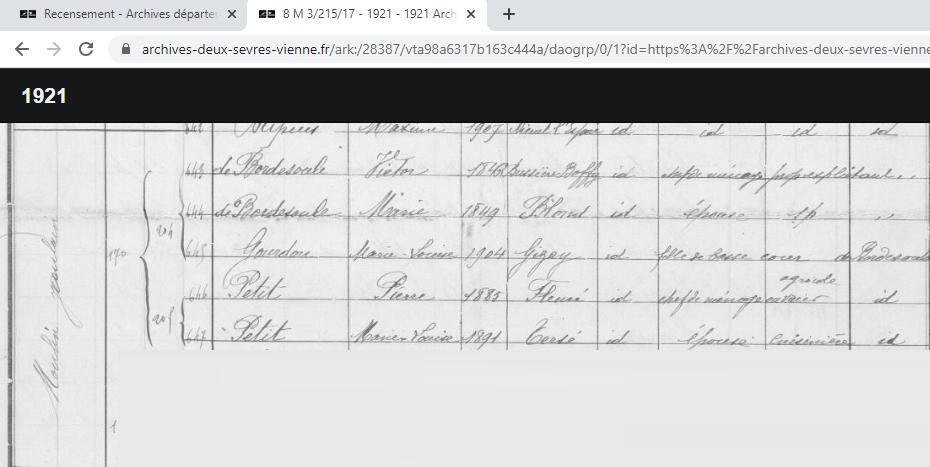 Recensement - Archives départer
8 M 3/215/17 - 1921 - 1921 Arch
archives-deux-sevres-vienne.fr/ark:/28387/vta98a6317b163c444a/daogrp/0/1?id=https%3A%2F%2Farchives-deux-sevres-vienne
1921
642 Maxime 1907 id id id id
643 de Bordesoule Victor Bussière Boffy id chef de ménage prop exploitant
644 de Bordesoule Marie 1849 Blond id épouse sp "
645 Gourdon Marie-Louise 1904 Gizay id fille de basse cour de Bordesoule
646 Petit Pierre 1885 Fleuré id chef de ménage ouvrier agricole id
647 Petit Marie-Louise 1891 Tercé id épouse cuisinière id
170
204
205
Moulin
1